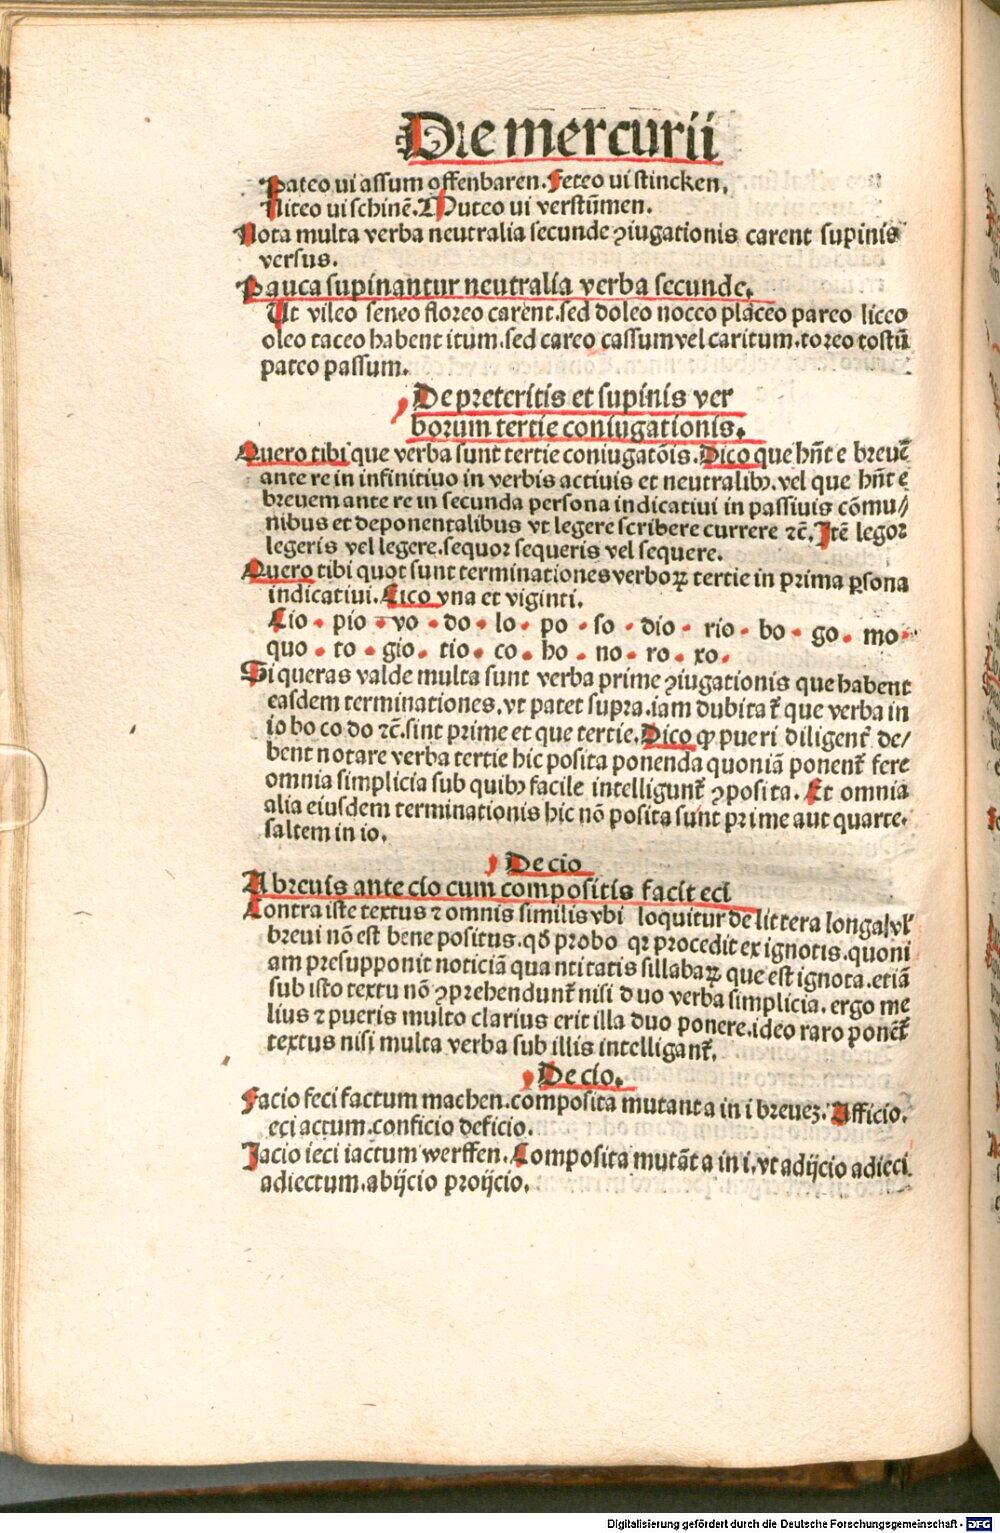 Die mercurii
Pateo ui assum offenbaren. Feteo ui stincken,
Niteo ui schinē. Muteo ui verstūmen.
Nota multa verba neutralia secunde ꝯiugationis carent supinis
versus.
Pauca supinantur neutralia verba secunde.
Ut vileo seneo floreo carent. sed doleo nocco placeo pareo liceo
oleo taceo habent itum. sed careo cassum vel caritum. toreo tostū
pateo passum.
De preteritis et supinis ver
borum tertie coniugationis.
Quero tibi que verba sunt tertie coniugatōis. Dico que hn̄t e breuē
ante re in infinitiuo in verbis actiuis et neutralibꝫ. vel que hn̄t e
breuem ante re in secunda persona indicatiui in passiuis cōmu//
nibus et deponentalibus vt legere scribere currere ⁊c̄. Itē legoꝛ
legeris vel legere. sequoꝛ sequeris vel sequere.
Quero tibi quot sunt terminationes verboꝝ tertie in prima ꝑsona
indicatiui. Dico vna et viginti.
Cio. pio vo. do. lo. po. so. dio. rio. bo. go. mo.
quo. to. gio. tio. co. ho. no. ro. xo.
Si queras valde multa sunt verba prime ꝯiugationis que habent
easdem terminationes. vt patet supra. iam dubitat᷑ que verba in
io bo co do ⁊c̄. sint prime et que tertie. Dico ꝙ pueri diligent᷑ de/
bent notare verba tertie hic posita ponenda quoniā ponent᷑ fere
omnia simplicia sub quibꝫ facile intelligunt᷑ ꝯposita. Et omnia
alia eiusdem terminationis hic nō posita sunt prime aut quarte.
saltem in io.
De cio
A breuis ante cio cum compositis facit eci
Contra iste textus ⁊ omnis similis vbi loquitur de littera longa|vl'
breui nō est bene positus. qđ probo qꝛ procedit ex ignotis. quoni
am presupponit noticiā quantitatis sillabaꝝ que est ignota. etiā
sub isto textu nō ꝯprehendunt᷑ nisi duo verba simplicia. ergo me
lius ⁊ pueris multo clarius erit illa duo ponere. ideo raro ponēt᷑
textus nisi multa verba sub illis intelligant᷑.
De cio.
Facio feci factum machen. composita mutant a in i breueꝫ. Afficio.
eci actum. conficio deficio.
Jacio ieci iactum werffen. Composita mutāt a in i. vt adijcio adieci
adiectum. abijcio proijcio.
Digitalisierung gefördert durch die Deutsche Forschungsgemeinschaft - DFG